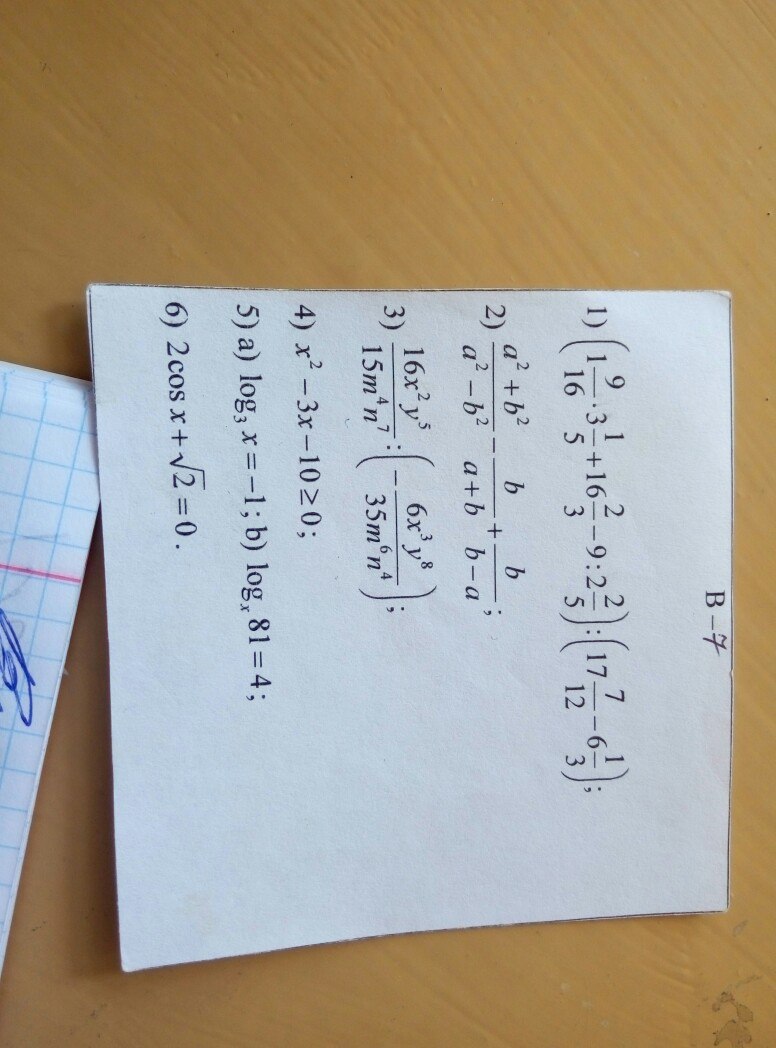 В-7
1) (1 9/16 · 3 1/5 + 16 2/3 − 9 : 2 2/5) : (17 7/12 − 6 1/3);
2) (a² + b²)/(a² − b²) − b/(a + b) + b/(b − a);
3) (16x²y⁵)/(15m⁴n⁷) : (− (6x³y⁸)/(35m⁶n⁴));
4) x² − 3x − 10 ≥ 0;
5) a) log₃ x = −1; b) logₓ 81 = 4;
6) 2cos x + √2 = 0.